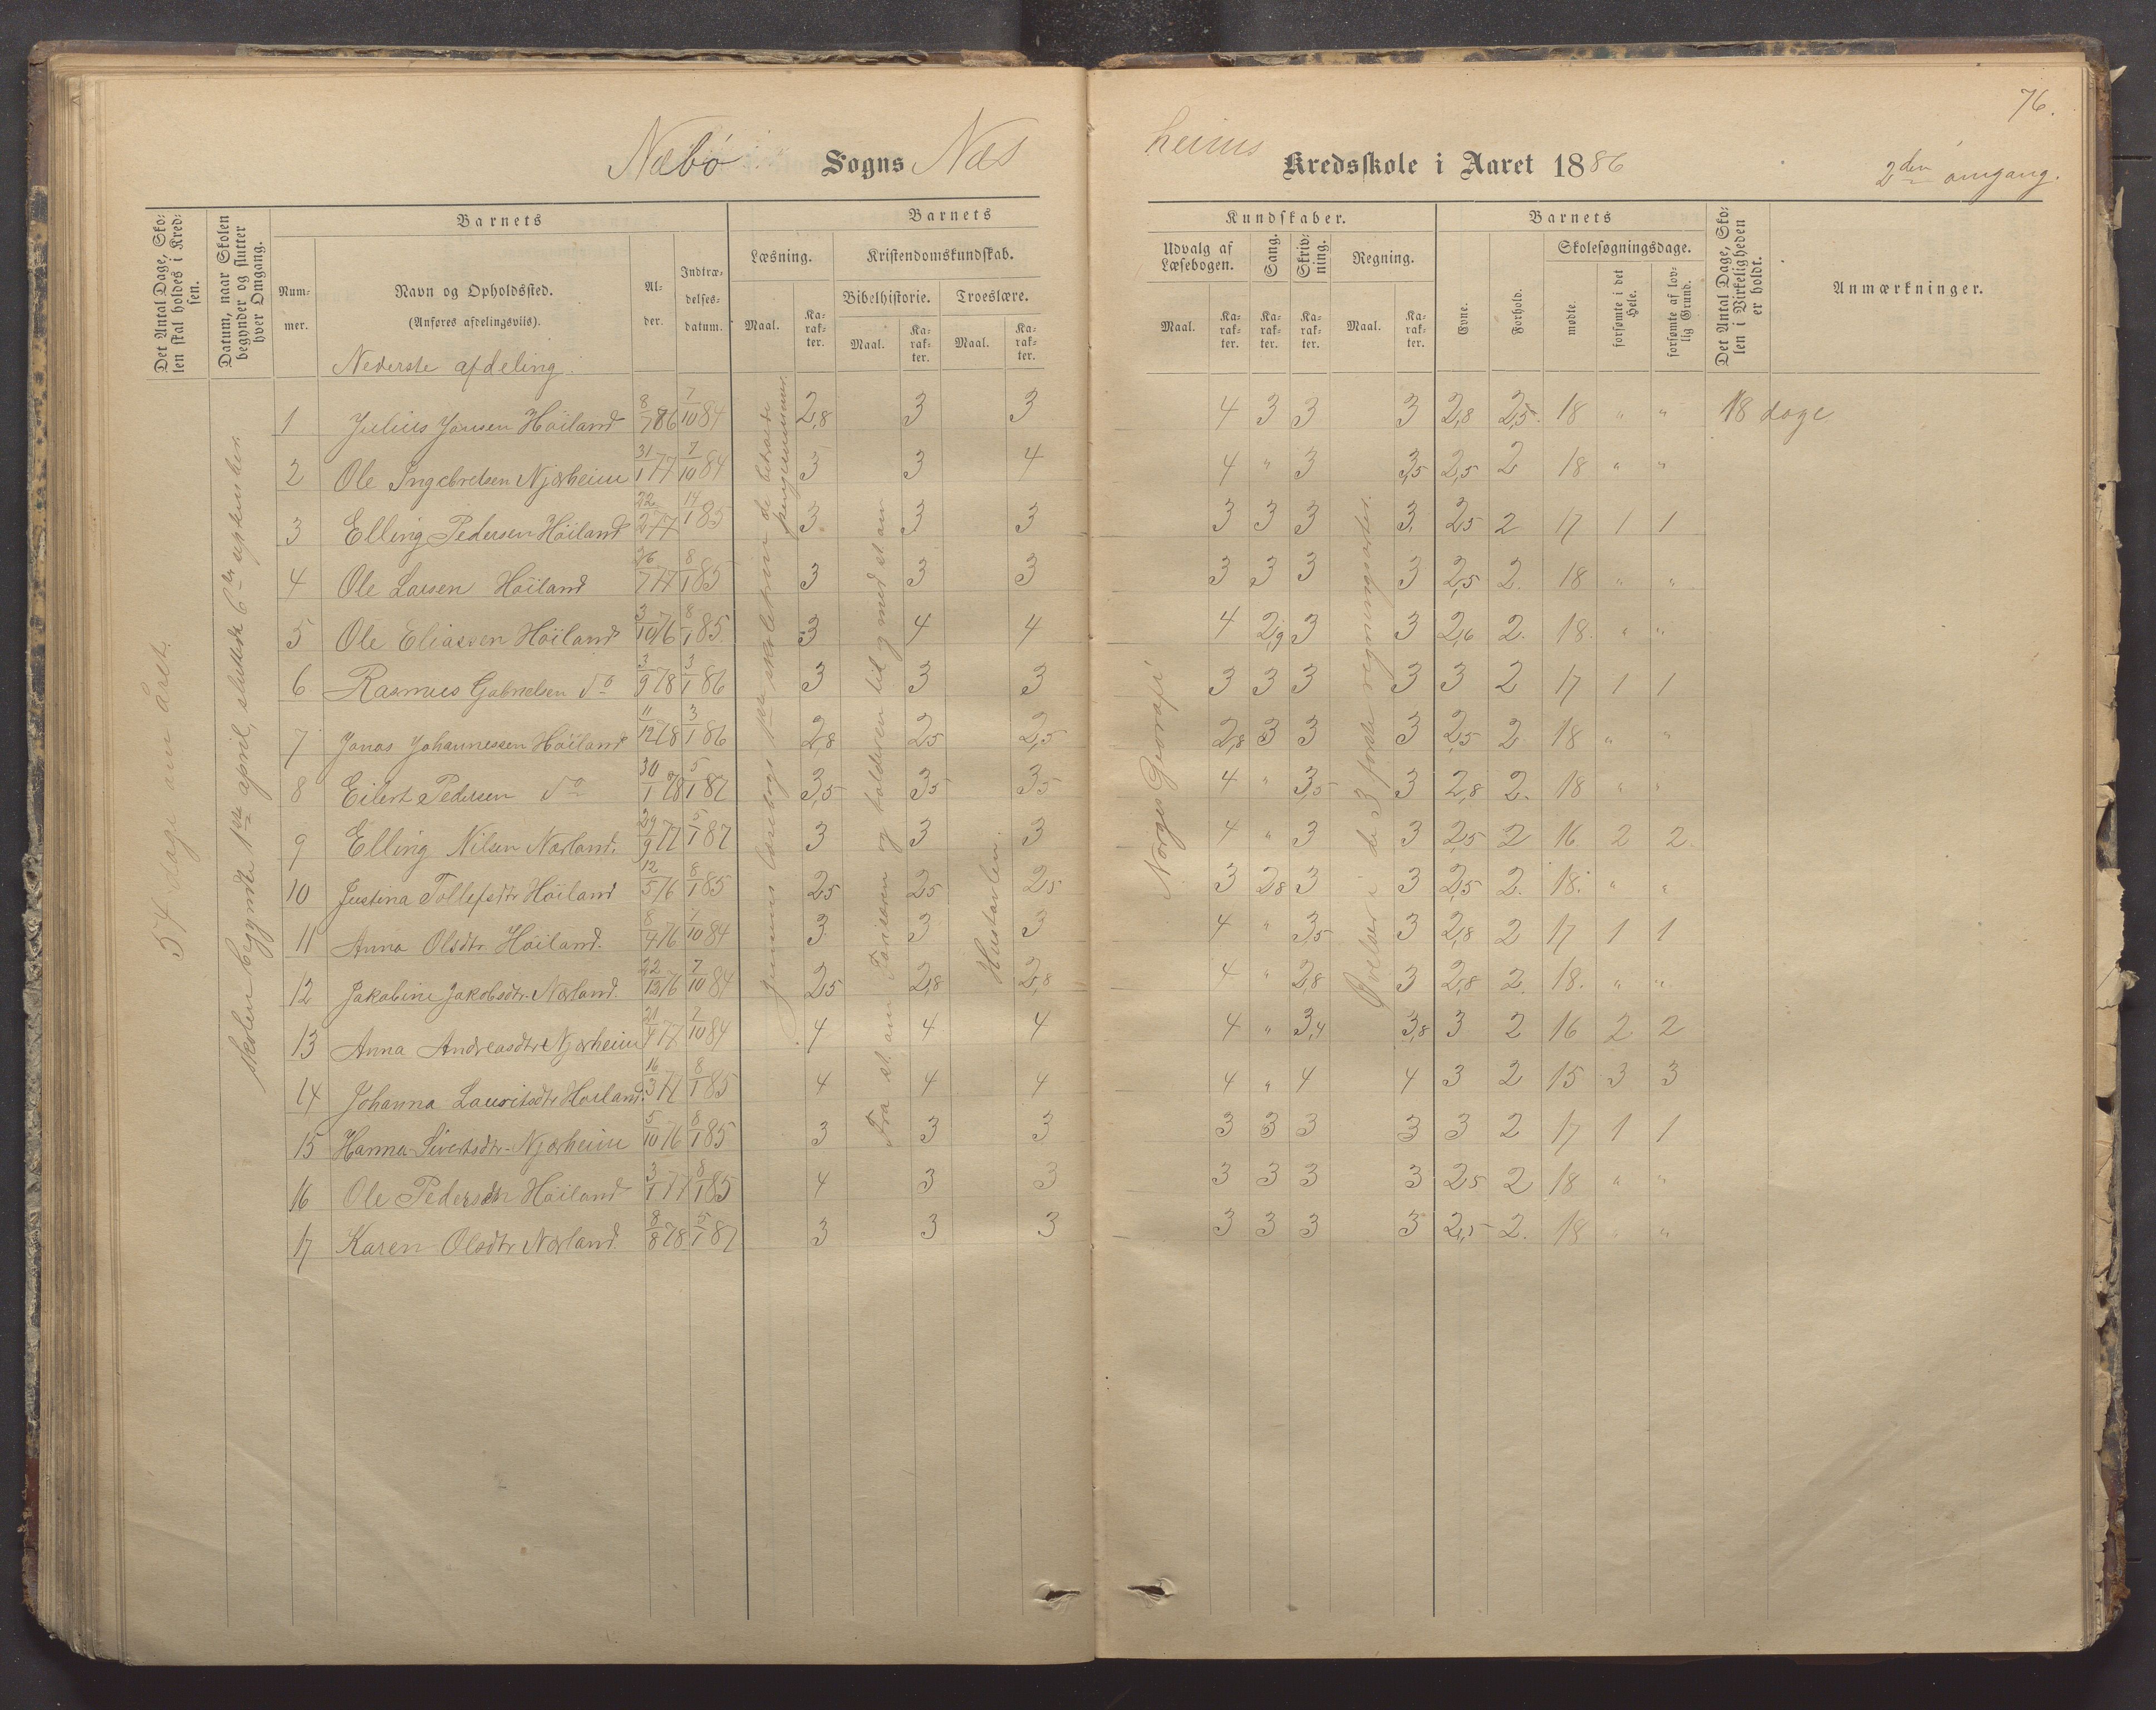 76.
Næbø Sogns Næs
heims Kredsskole i Aaret 1886
2den omgang.
Det Antal Dage, Skolen skal holdes i Kredsen.
Datum, naar Skolen begynder og slutter hver Omgang.
Barnets
Nummer.
Navn og Opholdssted.
(Anføres afdelingsviis).
Alder.
Indtrædelsesdatum.
Barnets
Læsning.
Kristendomskundskab.
Bibelhistorie. Troeslære.
Maal. Karakter. Maal. Karakter. Maal. Karakter.
Kundskaber.
Udvalg af Læsebogen. Sang. Skrivning. Regning.
Maal. Karakter. Karakter. Karakter. Maal. Karakter.
Barnets
Evne. Forhold.
Skolesøgningsdage.
mødte. forsømte i det Hele. forsømte af lovlig Grund.
Det Antal Dage, Skolen i Virkeligheden er holdt.
Anmærkninger.
54 dage om året.
skolen begyndte 1ste april, sluttede 6te
Nederste afdeling.
Norges Geografi
Øvelser i de 3 første regningsarter.
Hustavlen.
1 Julius Jonsen Höiland 7/10 84 2,8 3 3 4 3 3 3 2,8 2,5 18 " " 18 dage
2 Ole Ingebretsen Njærheim 31/1 77 7/10 84 3 3 4 4 " 3 3,5 2,5 2 18 " "
3 Elling Pedersen Höiland 22/2 77 14/1 85 3 3 3 3 3 3 3, 2,5 2 17 1 1
4 Ole Larsen Höiland 26/7 77 8/1 85 3 3 3 3 3 3 3 2,5 2. 18 " "
5 Ole Eliassen Höiland 3/10 76 8/1 85 3 4 4 4 2,9 3 3 2,6 2. 18. " "
6 Rasmus Gabrielsen do 3/9 78 3/1 86 3 3 3 3 3 3 3 3 2 17 1 1
7 Jonas Johannessen Höiland 11/12 78 3/1 86 2,8 2,5 2,5 2,8 3 3 3 2,5 2 18 " "
8 Eilert Pedersen do 30/1 78 5/1 87 3,5 3,5 3,5 4 " 3,5 3 2,8 2. 18 " "
9 Elling Nilsen Nærland. 29/9 77 5/1 87 3 3 3 4 " 3 3 2,5 2 16 2 2
10 Justina Tollefsdtr Höiland 12/5 76 8/1 85 2,5 2,5 2,5 3 2,8 3 3 2,5 2. 18. " "
11 Anna Olsdtr. Höiland. 8/4 76 7/10 84 3 3 3 4 " 3,5 3 2,8 2 17 1 1
12 Jakobine Jakobsdtr. Nærland. 22/12 76 7/10 84 2,5 2,8 2,8 4 " 2,8 3 2,8 2. 18. " "
13 Anna Andreasdtr Njærheim 21/4 77 7/10 84 4 4 4 4 " 3,4 3,8 3 2 16 2 2
14 Johanna Lauritsdtr Höiland. 16/3 77 8/1 85 4 4 4 4 " 4 4 3 2 15 3 3
15 Hanna Sivertsdtr. Njærheim 5/10 76 8/1 85 3 3 3 3 3 3 3 3 2 17 1 1
16 Ole Pedersen Höiland 3/1 77 8/1 85 4 3 3 3 3 3 3 2,5 2 18 " "
17 Karen Olsdtr Nærland. 8/8 78 5/1 87 3 3 3 3 3 3 3 2,5 2. 18 " "